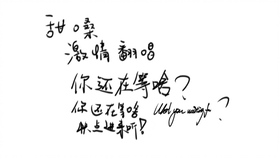 甜嗓
激情翻唱
你还在等啥？
你还在等啥 ？
快点进来听！